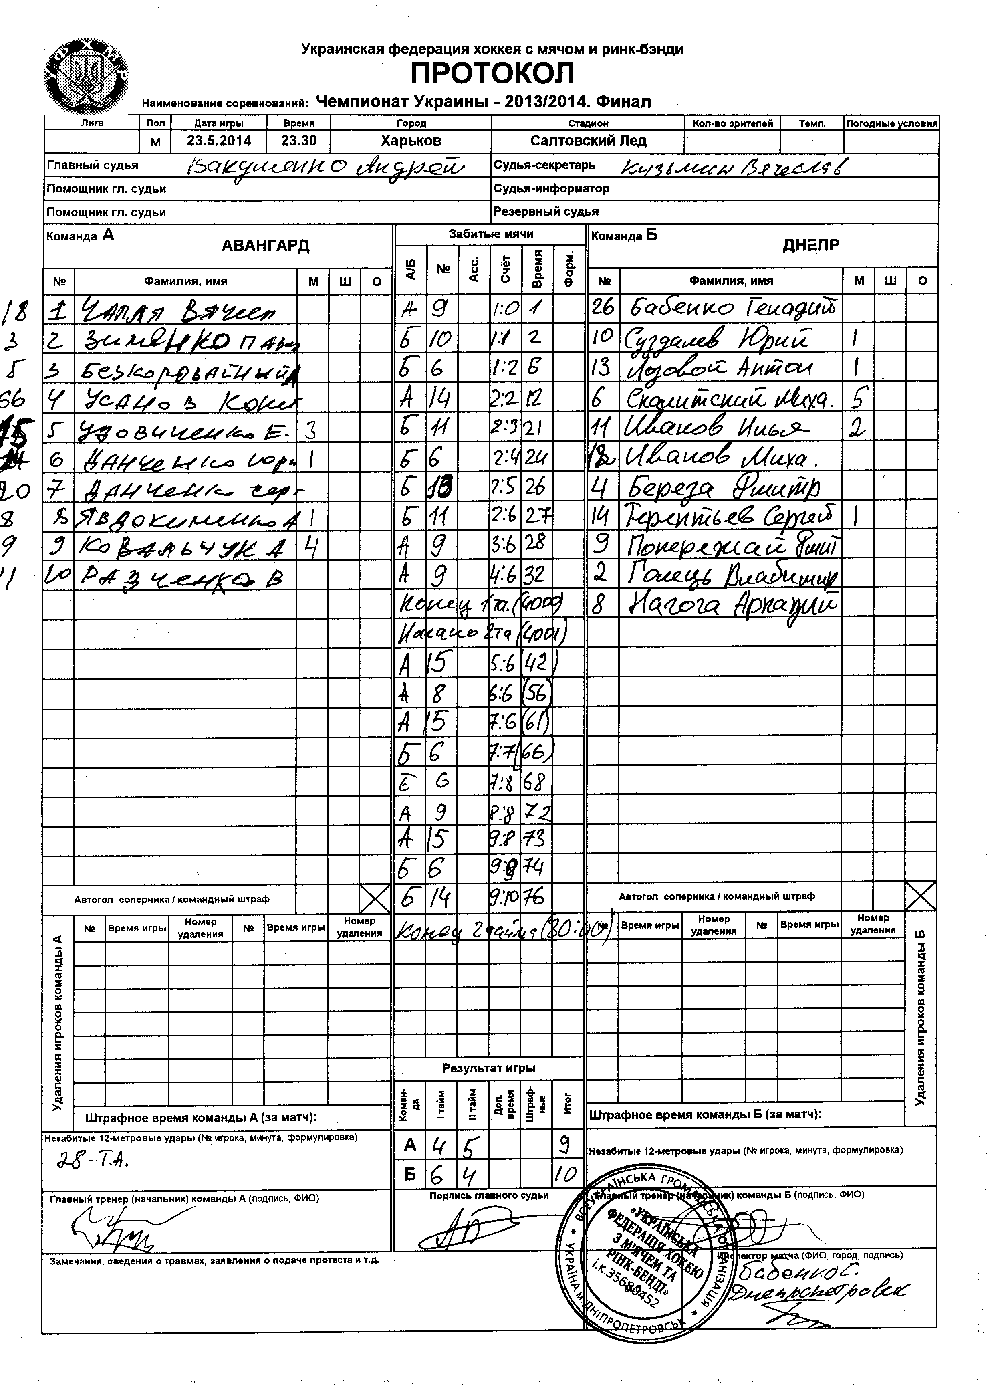 Украинская федерация хоккея с мячом и ринк-бэнди
ПРОТОКОЛ
Наименование соревнований: Чемпионат Украины - 2013/2014. Финал
Лига Пол Дата игры Время Город Стадион Кол-во зрителей Темп. Погодные условия
М 23.5.2014 23.30 Харьков Салтовский Лед
Главный судья Вакуленко Андрей Судья-секретарь Кузьмин Вячеслав
Помощник гл. судьи Судья-информатор
Помощник гл. судьи Резервный судья
Команда А АВАНГАРД Забитые мячи Команда Б ДНЕПР
№ Фамилия, имя М Ш О А/Б № Асс. Счёт Время Форм. № Фамилия, имя М Ш О
18 1 ЧАПЛЯ ВЯЧЕСЛ А 9 1:0 1 26 Бабенко Генадий
3 2 ЗИМЕНКО ПАВ Б 10 1:1 2 10 Суздалев Юрий 1
5 3 БЕЗКОРОВАЙНЫЙ Б 6 1:2 6 13 Лозовой Антон 1
66 4 УСАНОВ КОНСТ А 14 2:2 12 6 Скопитский Миха. 5
15 5 УДОВИЧЕНКО Е. 3 Б 11 2:3 21 11 Иванов Илья 2
6 ДАНЧЕНКО 1 Б 6 2:4 24 Иванов Миха.
20 7 ДАНЧЕНКО СЕРГ Б 13 2:5 26 4 Береза Дмитр
8 8 ЯВДОКИМЕНКО А 1 Б 11 2:6 27 14 Терентьев Сергей 1
9 9 КОВАЛЬЧУК А 4 А 9 3:6 28 9 Попережай Дмит
11 10 РАЗЧЕНКО В А 9 4:6 32 2 Голець Владимир
Конец 1та. (4000) 8 Нагога Аркадий
Начало 2та (4001)
А 15 5:6 (42)
А 8 6:6 (56)
А 15 7:6 (61)
Б 6 7:7 (66)
Б 6 7:8 68
А 9 8:8 72
А 15 9:8 73
Б 6 9:9 74
Автогол соперника / командный штраф Б 14 9:10 76 Автогол соперника / командный штраф
Удаления игроков команды А № Время игры Номер удаления № Время игры Номер удаления Конец 2 тайма (80:00) № Время игры Номер удаления № Время игры Номер удаления Удаления игроков команды Б
Результат игры
Штрафное время команды А (за матч): Коман-да I тайм II тайм Доп. время Штраф-ные Итог Штрафное время команды Б (за матч):
Незабитые 12-метровые удары (№ игрока, минута, формулировка) А 4 5 9 Незабитые 12-метровые удары (№ игрока, минута, формулировка)
28-Т.А. Б 6 4 10
Главный тренер (начальник) команды А (подпись, ФИО) Подпись главного судьи Главный тренер (начальник) команды Б (подпись, ФИО)
Замечания, сведения о травмах, заявления о подаче протеста и т.д. Инспектор матча (ФИО, город, подпись)
Бабенко Г.
Днепропетровск
УФХМР
ВСЕУКРАЇНСЬКА ГРОМАДСЬКА ОРГАНІЗАЦІЯ * УКРАЇНА М. ДНІПРОПЕТРОВСЬК *
«УКРАЇНСЬКА
ФЕДЕРАЦІЯ ХОКЕЮ
З М'ЯЧЕМ ТА
РІНК-БЕНДІ»
і.к.35680452